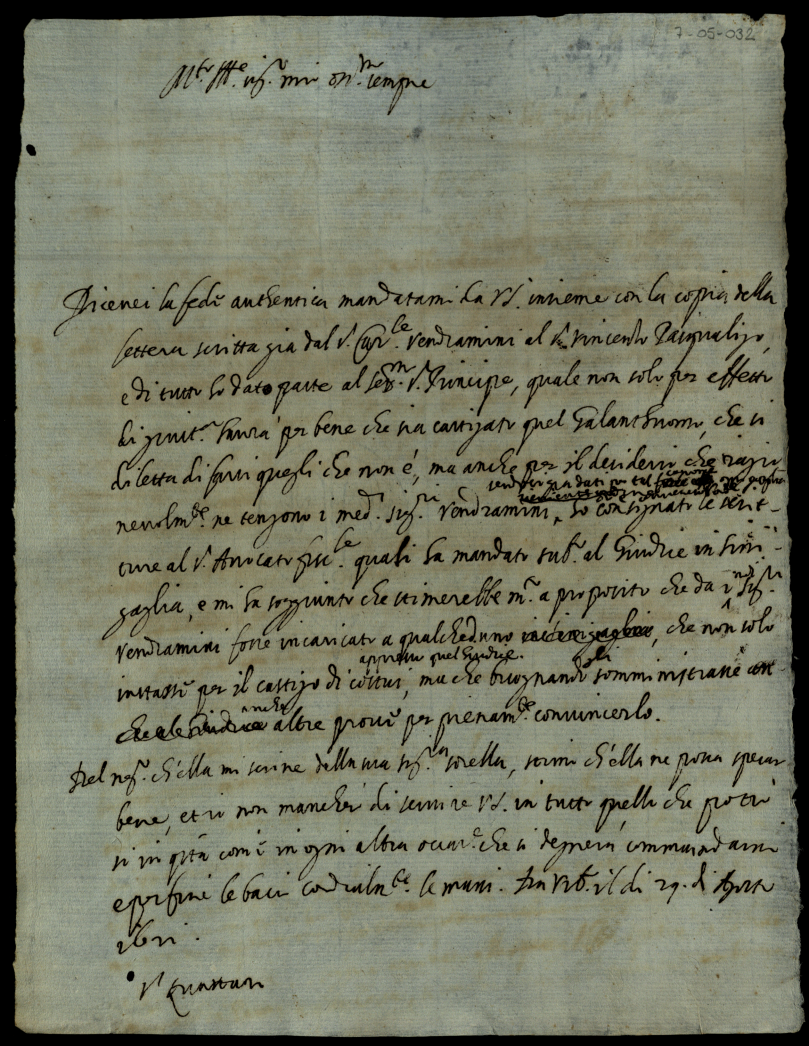 7-05-032
M.to Ill.re sig.r mio oss.mo sempre
Ricevei la fede authentica mandatami da VS. insieme con la copia della
lettera scritta gia dal s. Vendramini al s. Vincenzo Pasqualigo,
e di tutto ho dato parte al Ser.mo s. Principe, quale non solo per effetto
di giust.a havrà per bene che sia castigato quel Galanthuomo, che si
diletta di farsi quegli che non è, ma anche per il desiderio che ragio
nevolm.te ne tengono i med.i sig.ri Vendramini, ho consignato le scrit-
ture al s. Avocato fisc.le quali ha mandato sub.o al Giudice in Sini-
gaglia, e mi ha soggiunto che stimerebbe m.o a proposito che da i sig.ri
Vendramini fosse incaricato a qualcheduno, che non solo
appresso quel Giudice
instasse per il castigo di costui, ma che bisognando somministrasse
anche
altre prove per pienam.te convincerlo.
Del neg.o ch'ella mi scrive della sua sig.ra sorella, stimi ch'ella ne possa sperar
bene, et io non mancherò di servire VS. in tutto quello che potrò
si in q.sta com'è in ogni altra occas.e che si degnerà commandarmi
e per fine le bacio cordialm.te le mani. Da Urb.o il dì 29. di Agosto